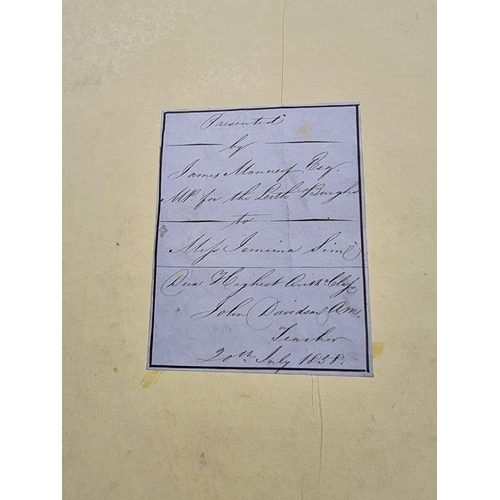 Presented
by
James Moncreif Esq.
MP. for the Leith Burghs
to
Miss Jemima Sim
Dux Highest Class
John Davidson A.M.
Teacher
20th July 1858.